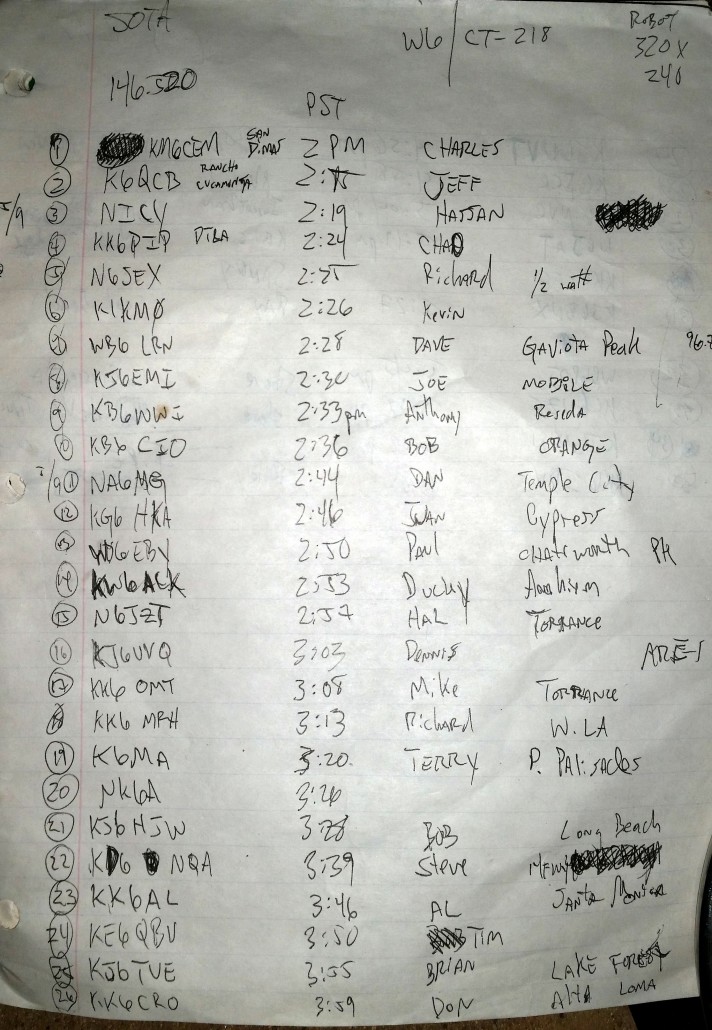 SOTA W6/CT-218 ROBOT
320 X
240
146.520
PST
1 KM6CEM SAN DIMAS 2 PM CHARLES
2 K6QCB RANCHO CUCAMONGA JEFF
3 N1CY 2:19 HASSAN
4 KK6PIP DTLA 2:24 CHAD
5 N6JEX 2:25 Richard 1/2 watt
6 K1KMØ 2:26 Kevin
7 WB6 LRN 2:28 DAVE GAViOTA Peak
8 KJ6EMI 2:30 JOE MOBILE
9 KB6WWI 2:33pm Anthony Reseda
10 KB6 CIO 2:36 BOB ORANGE
11 NA6MG 2:44 DAN Temple City
12 KG6 HKA 2:46 JUAN Cypress
13 2:50 PAUL Chatsworth PK
14 KW6ACK 2:53 Ducky
15 N6JZT 2:57 HAL TORRANCE
16 KJ6UVQ 3:03 DENNIS
17 KK6 OMT 3:08 Mike TORRANCE
18 KK6 MRH 3:13 Richard W. LA
19 K6MA 3:20 TERRY P. PALiSADES
20 NK6A 3:26
21 KJ6 HJW 3:28 BOB Long Beach
22 NQA 3:39 Steve
23 KK6AL 3:46 AL Santa Monica
24 KE6QBV 3:50 TIM
25 KJ6TVE 3:55 BRIAN LAKE FOREST
26 KK6CRO 3:59 DON Alta LOMA